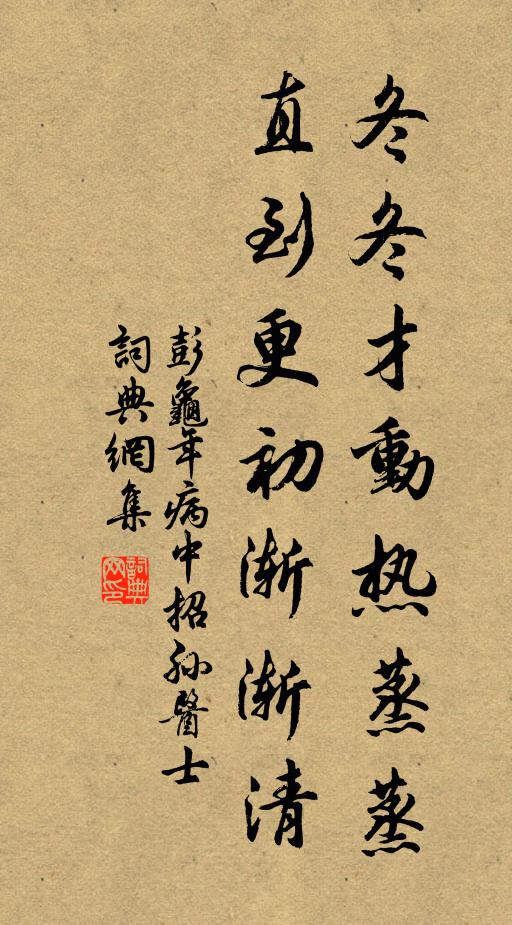 冬冬才動热蒸蒸
直到更初渐渐清
彭龜年病中招孙醫士
詞典網集
詞典
网印